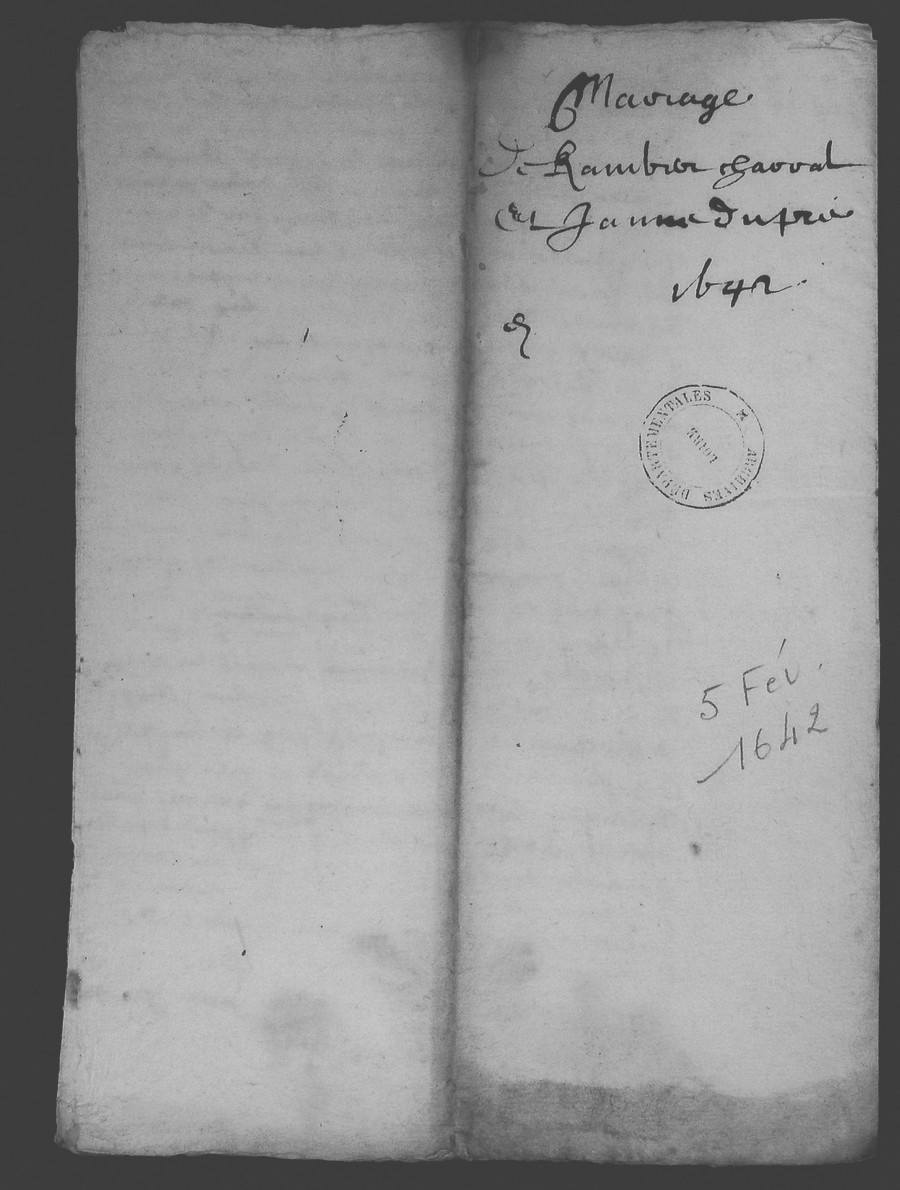 Mariage
De Rambier charral
Et Janne dupré
1642
ARCHIVES DÉPARTEMENTALES
LOZÈRE
5 Fév.
1642